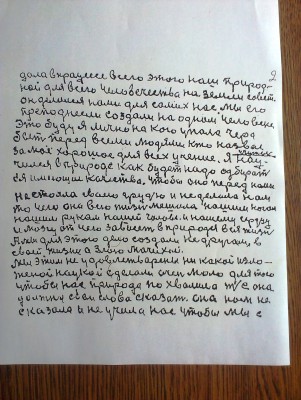 2
дала в процессе всего этого наш природ-
ной для всего человечества на земли совет.
он делался нами для самих нас мы его
преподнесли создали на одном человеке
Это буду я лично на кого упала черёд
быть перед всеми людями кто назвал
за моё хорошее для всех учение. Я нау-
чился в природе как будет надо одбират
ся имеющие качества, чтобы оно перед нами
настояла своею грудю и не делала нам
то чего она всю жизнь мешила нашим ногам
нашим рукам нашей голове. и нашему серцу
и мозгу от чего зависет в природе вся жизнь
Я мы для этого дело создали не другом, в
своей жизни а злою мачехой.
мы этим не удовлетварены ни какой изло-
женой наукой сделали очен мало для того
чтобы нас природа по хвалила
должны свои слова сказат. она нам не
сказала и не учила нас чтобы мы с